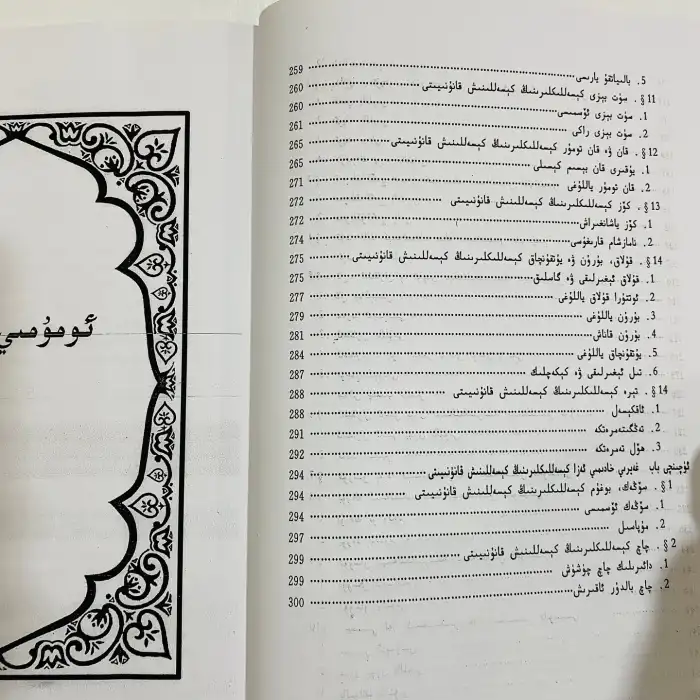 5. بالىياتقۇ يارىسى 259
§11. سۈت بېزى كېسەللىكلىرىنىڭ كېسەللىنىش قانۇنىيىتى 260
1. سۈت بېزى ئۆسمىسى 260
2. سۈت بېزى راكى 261
§12. قان ۋە قان تومۇر كېسەللىكلىرىنىڭ كېسەللىنىش قانۇنىيىتى 265
1. يۇقىرى قان بېسىم كېسىلى 265
2. قان تومۇر ياللۇغى 271
§13. كۆز كېسەللىكلىرىنىڭ كېسەللىنىش قانۇنىيىتى 272
1. كۆز ياشاڭغىراش 272
2. نامازشام قارىغۇسى 274
§14. قۇلاق، بۇرۇن ۋە يۇتقۇنچاق كېسەللىكلىرىنىڭ كېسەللىنىش قانۇنىيىتى 275
1. قۇلاق ئېغىرلىقى ۋە گاسلىق 275
2. ئوتتۇرا قۇلاق ياللۇغى 277
3. بۇرۇن ياللۇغى 279
4. بۇرۇن قاناش 281
5. يۇتقۇنچاق ياللۇغى 284
6. تىل ئېغىرلىقى ۋە كېكەچلىك 287
§14. تېرە كېسەللىكلىرىنىڭ كېسەللىنىش قانۇنىيىتى 288
1. ئاقكېسەل 288
2. تەڭگىتەمرەتكە 291
3. ھۆل تەمرەتكە 292
ئۈچىنچى باب غەيرىي خادىمىي ئەزا كېسەللىكلىرىنىڭ كېسەللىنىش قانۇنىيىتى 294
§1. سۆڭەك، بوغۇم كېسەللىكلىرىنىڭ كېسەللىنىش قانۇنىيىتى 294
1. سۆڭەك ئۆسمىسى 294
2. مۇپاسىل 297
§2. چاچ كېسەللىكلىرىنىڭ كېسەللىنىش قانۇنىيىتى 299
1. دائىرىلىك چاچ چۈشۈش 299
2. چاچ بالدۇر ئاقىرىش 300
ئومۇمىي